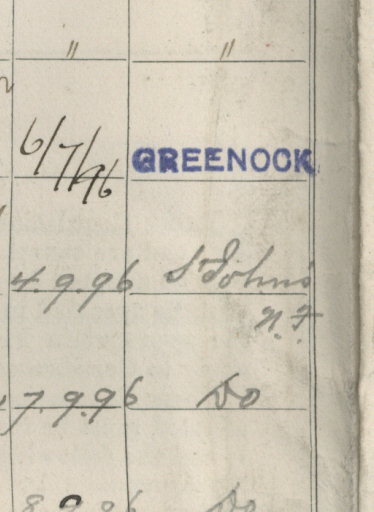 " "
6/7/96 GREENOCK
4.9.96 St John's
N.F.
7.9.96 Do
8.9.96 Do